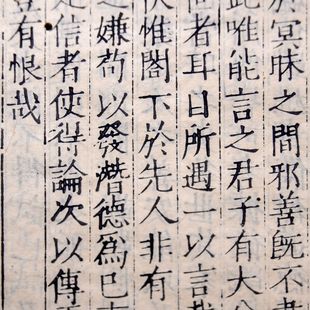 冥昧之間邪善既不
此唯能言之君子有大公
者耳目所遇一以言
惟閤下於先人非有
之嫌苟以發潛德為已
信者使得論次以傳
豈有恨哉